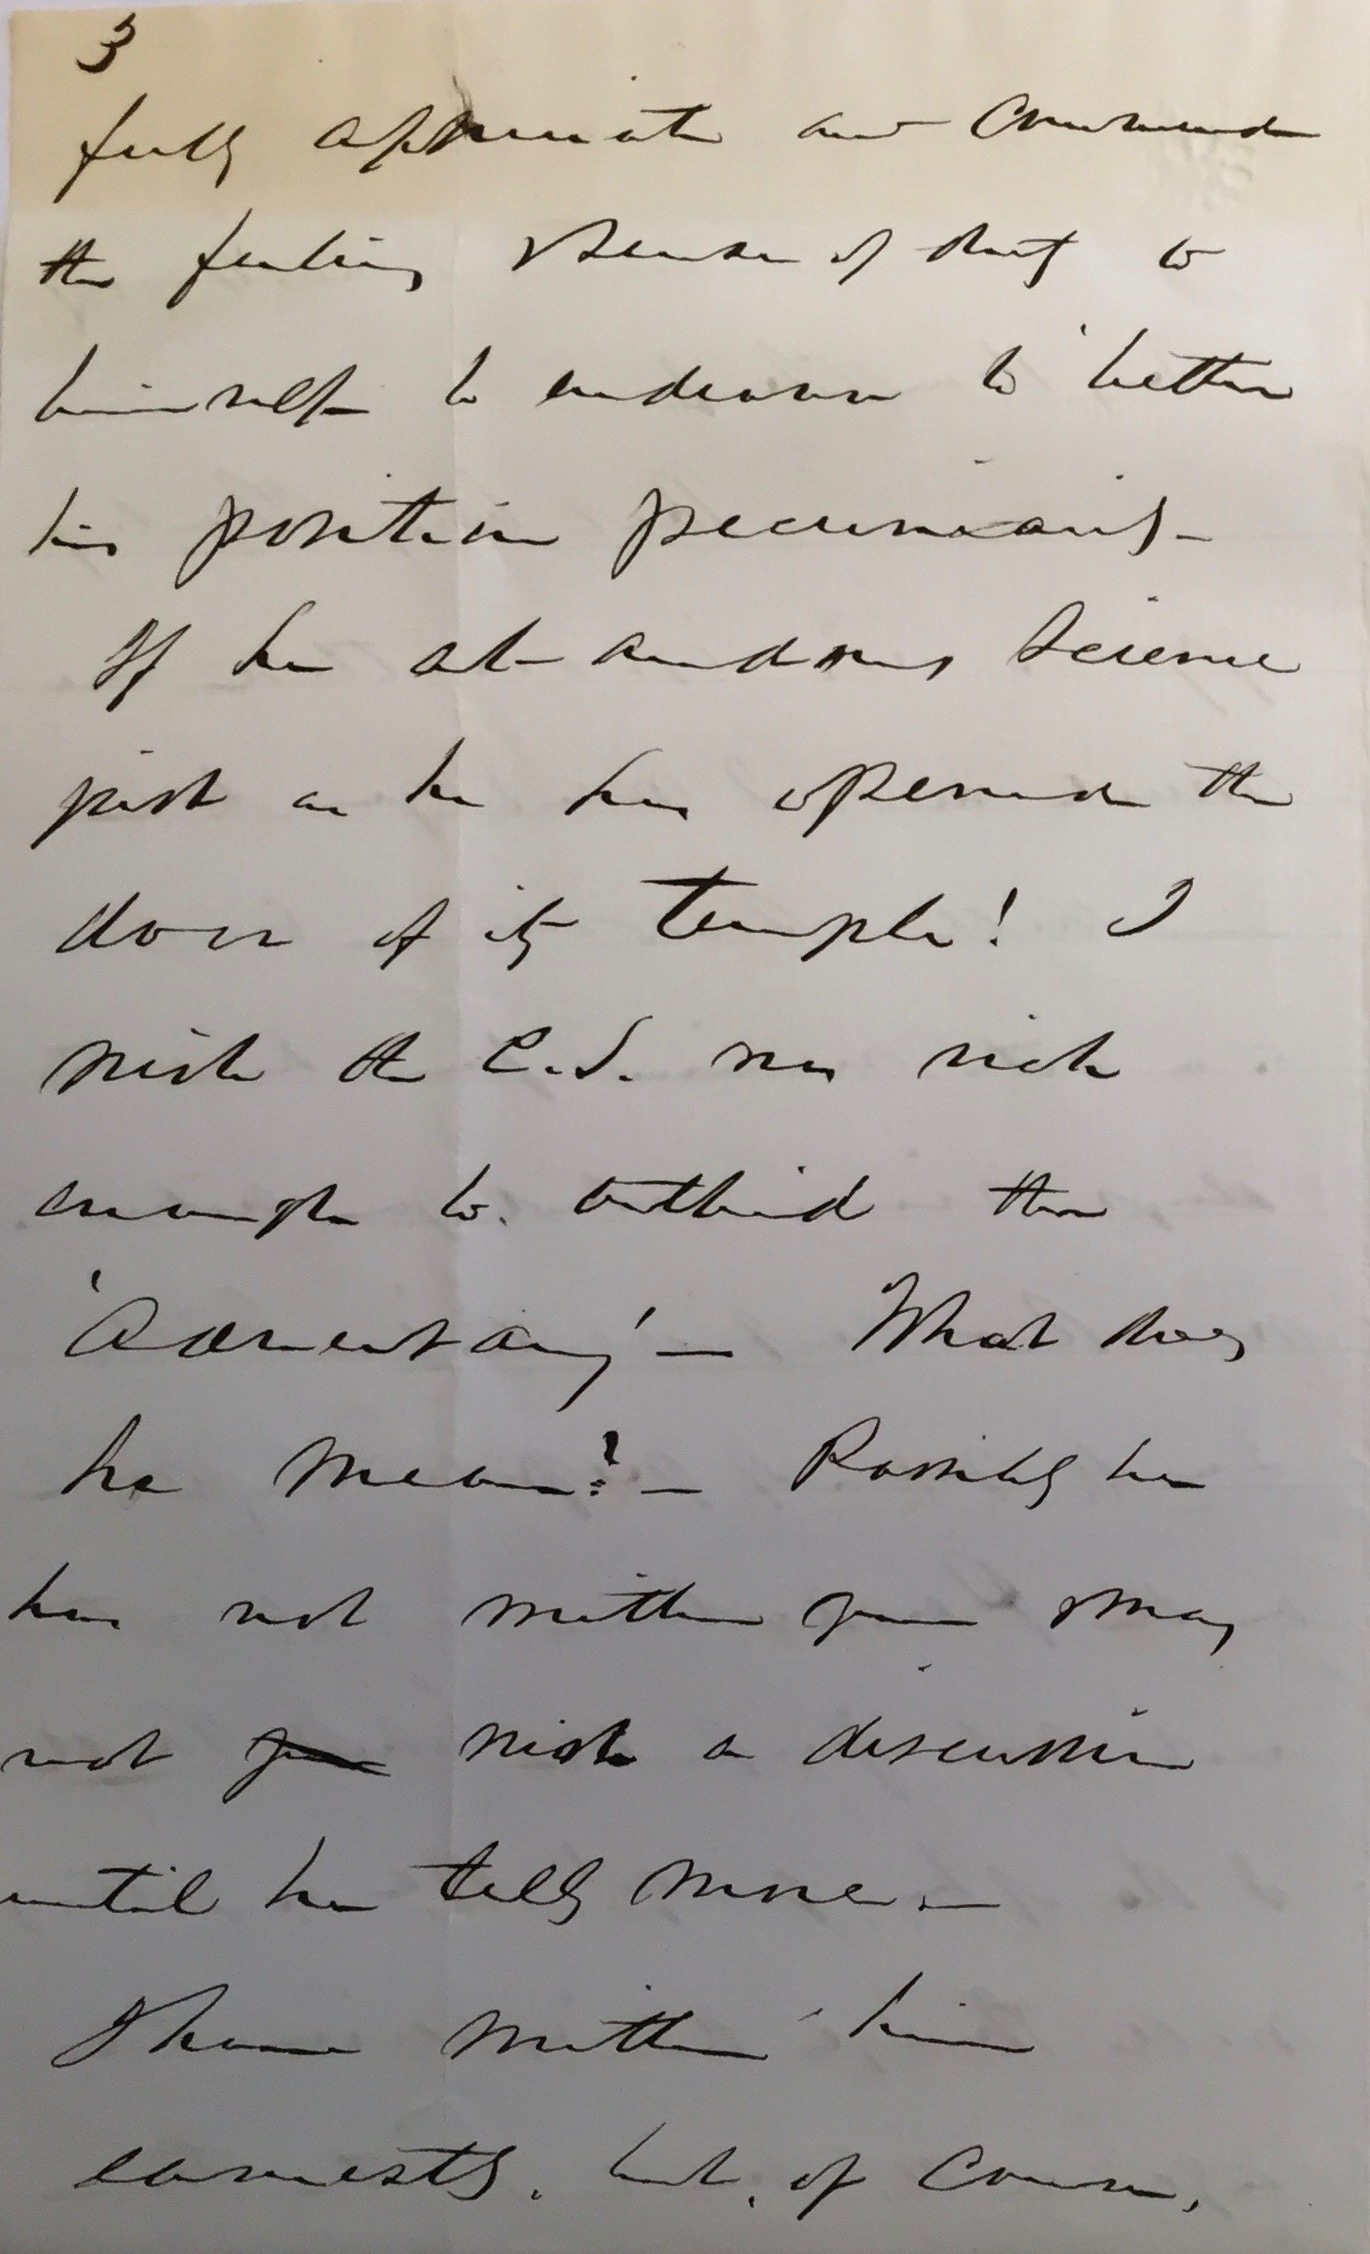 3
fully appreciate and commend
the feeling & sense of duty to
himself to endeavor to better
his position pecuniarily -
If he abandons Science
just as he has opened the
door of its temple! I
wish the C.S. was rich
enough to outbid the
' ' — What does
he mean? — Possibly he
has not written you & may
not you wish a discussion
until he tells more. —
I have written him
earnestly. but, of course,